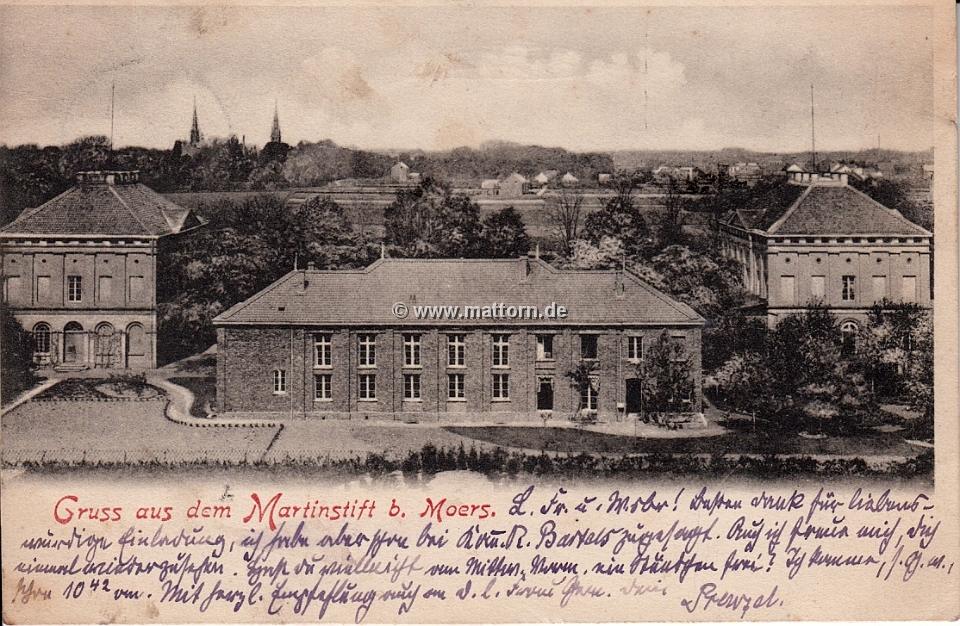 © www.mattorn.de
Gruss aus dem Martinstift b. Moers. L. Fr. u. Wsbr! Besten Dank für liebens-
würdige Einladung, ich habe aber schon bei R. Bartels zugesagt. Auch ich freue mich, dich
einmal wiederzusehen. Hast du vielleicht am Mittw. Vorm. ein Stündchen frei? Ich komme, s. G. w.,
schon 10 42 an. Mit herzl. Empfehlung auch an d. l. Frau dein